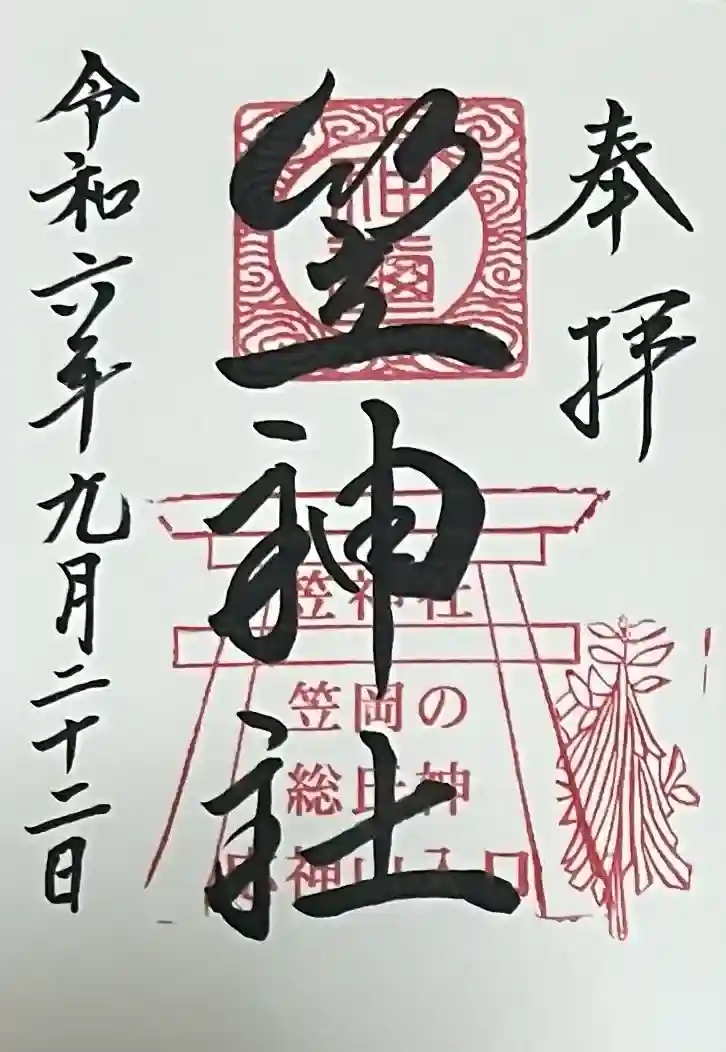 奉拝
笠神社
令和六年九月二十二日
笠神社
笠岡の
総氏神
神山入口